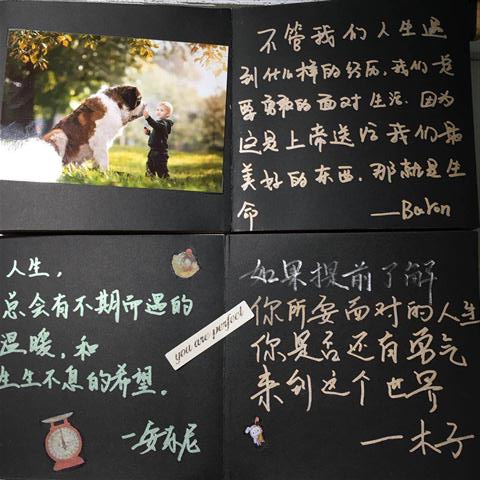 不管我们人生遇
到什么样的经历，我们总
要勇敢的面对生活，因为
这是上帝送给我们最
美好的东西，那就是生
命
——Baron
人生，
总会有不期而遇的
温暖，和
生生不息的希望。
—安东尼
you are perfect
如果提前了解
你所要面对的人生
你是否还有勇气
来到这个世界
—木子